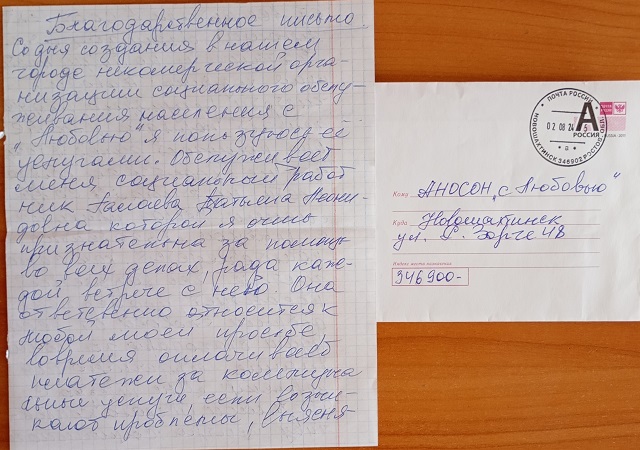 Благодарственное письмо.
Со дня создания в нашем
городе некомерческой орга-
низации социального обслу-
живания населения с
"Любовью" я пользуюсь её
услугами. Обслуживает
меня социальный работ
ник Татьяна Леони-
довна которой я очень
признательна за помощь
во всех делах, рада каж-
дой встрече с нею. Она
ответственно относится к
любой моей просьбе,
вовремя оплачивает
платежи за коммуна
льные услуги, если возни-
кают проблемы, выясня
ПОЧТА РОССИИ
02 08 24
НОВОШАХТИНСК 346902 РОСТОВ. ОБЛ.
А
РОССИЯ
Кому АНОСОН „с Любовью"
Куда Новошахтинск
ул. Зорге 48
346900-